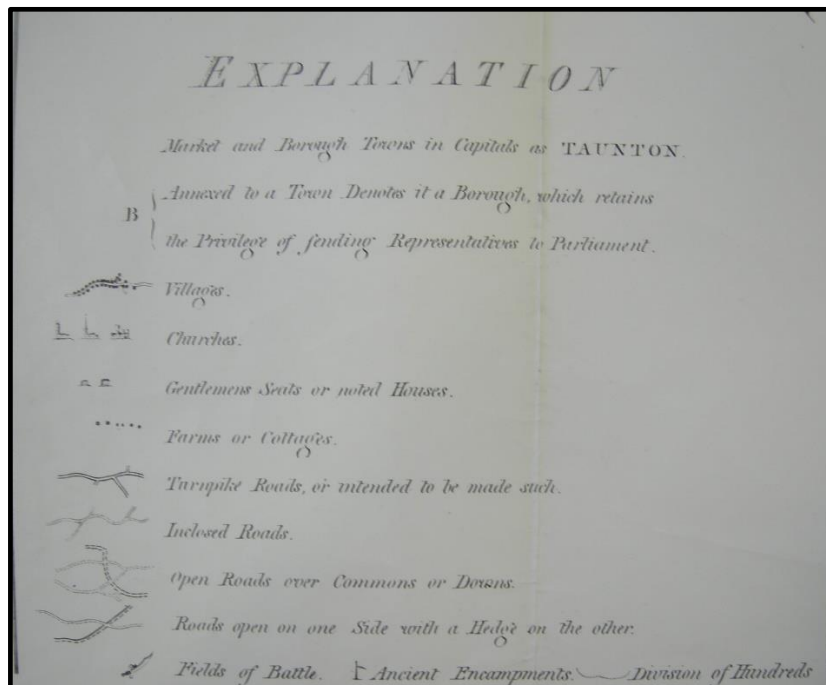 EXPLANATION
Market and Borough Towns in Capitals as TAUNTON.
B
Annexed to a Town Denotes it a Borough, which retains
the Privilege of ſending Representatives to Parliament.
Villages.
Churches.
Gentlemens Seats or noted Houses.
Farms or Cottages.
Turnpike Roads, or intended to be made such.
Inclosed Roads.
Open Roads over Commons or Downs.
Roads open on one Side with a Hedge on the other.
Fields of Battle. Ancient Encampments. Division of Hundreds